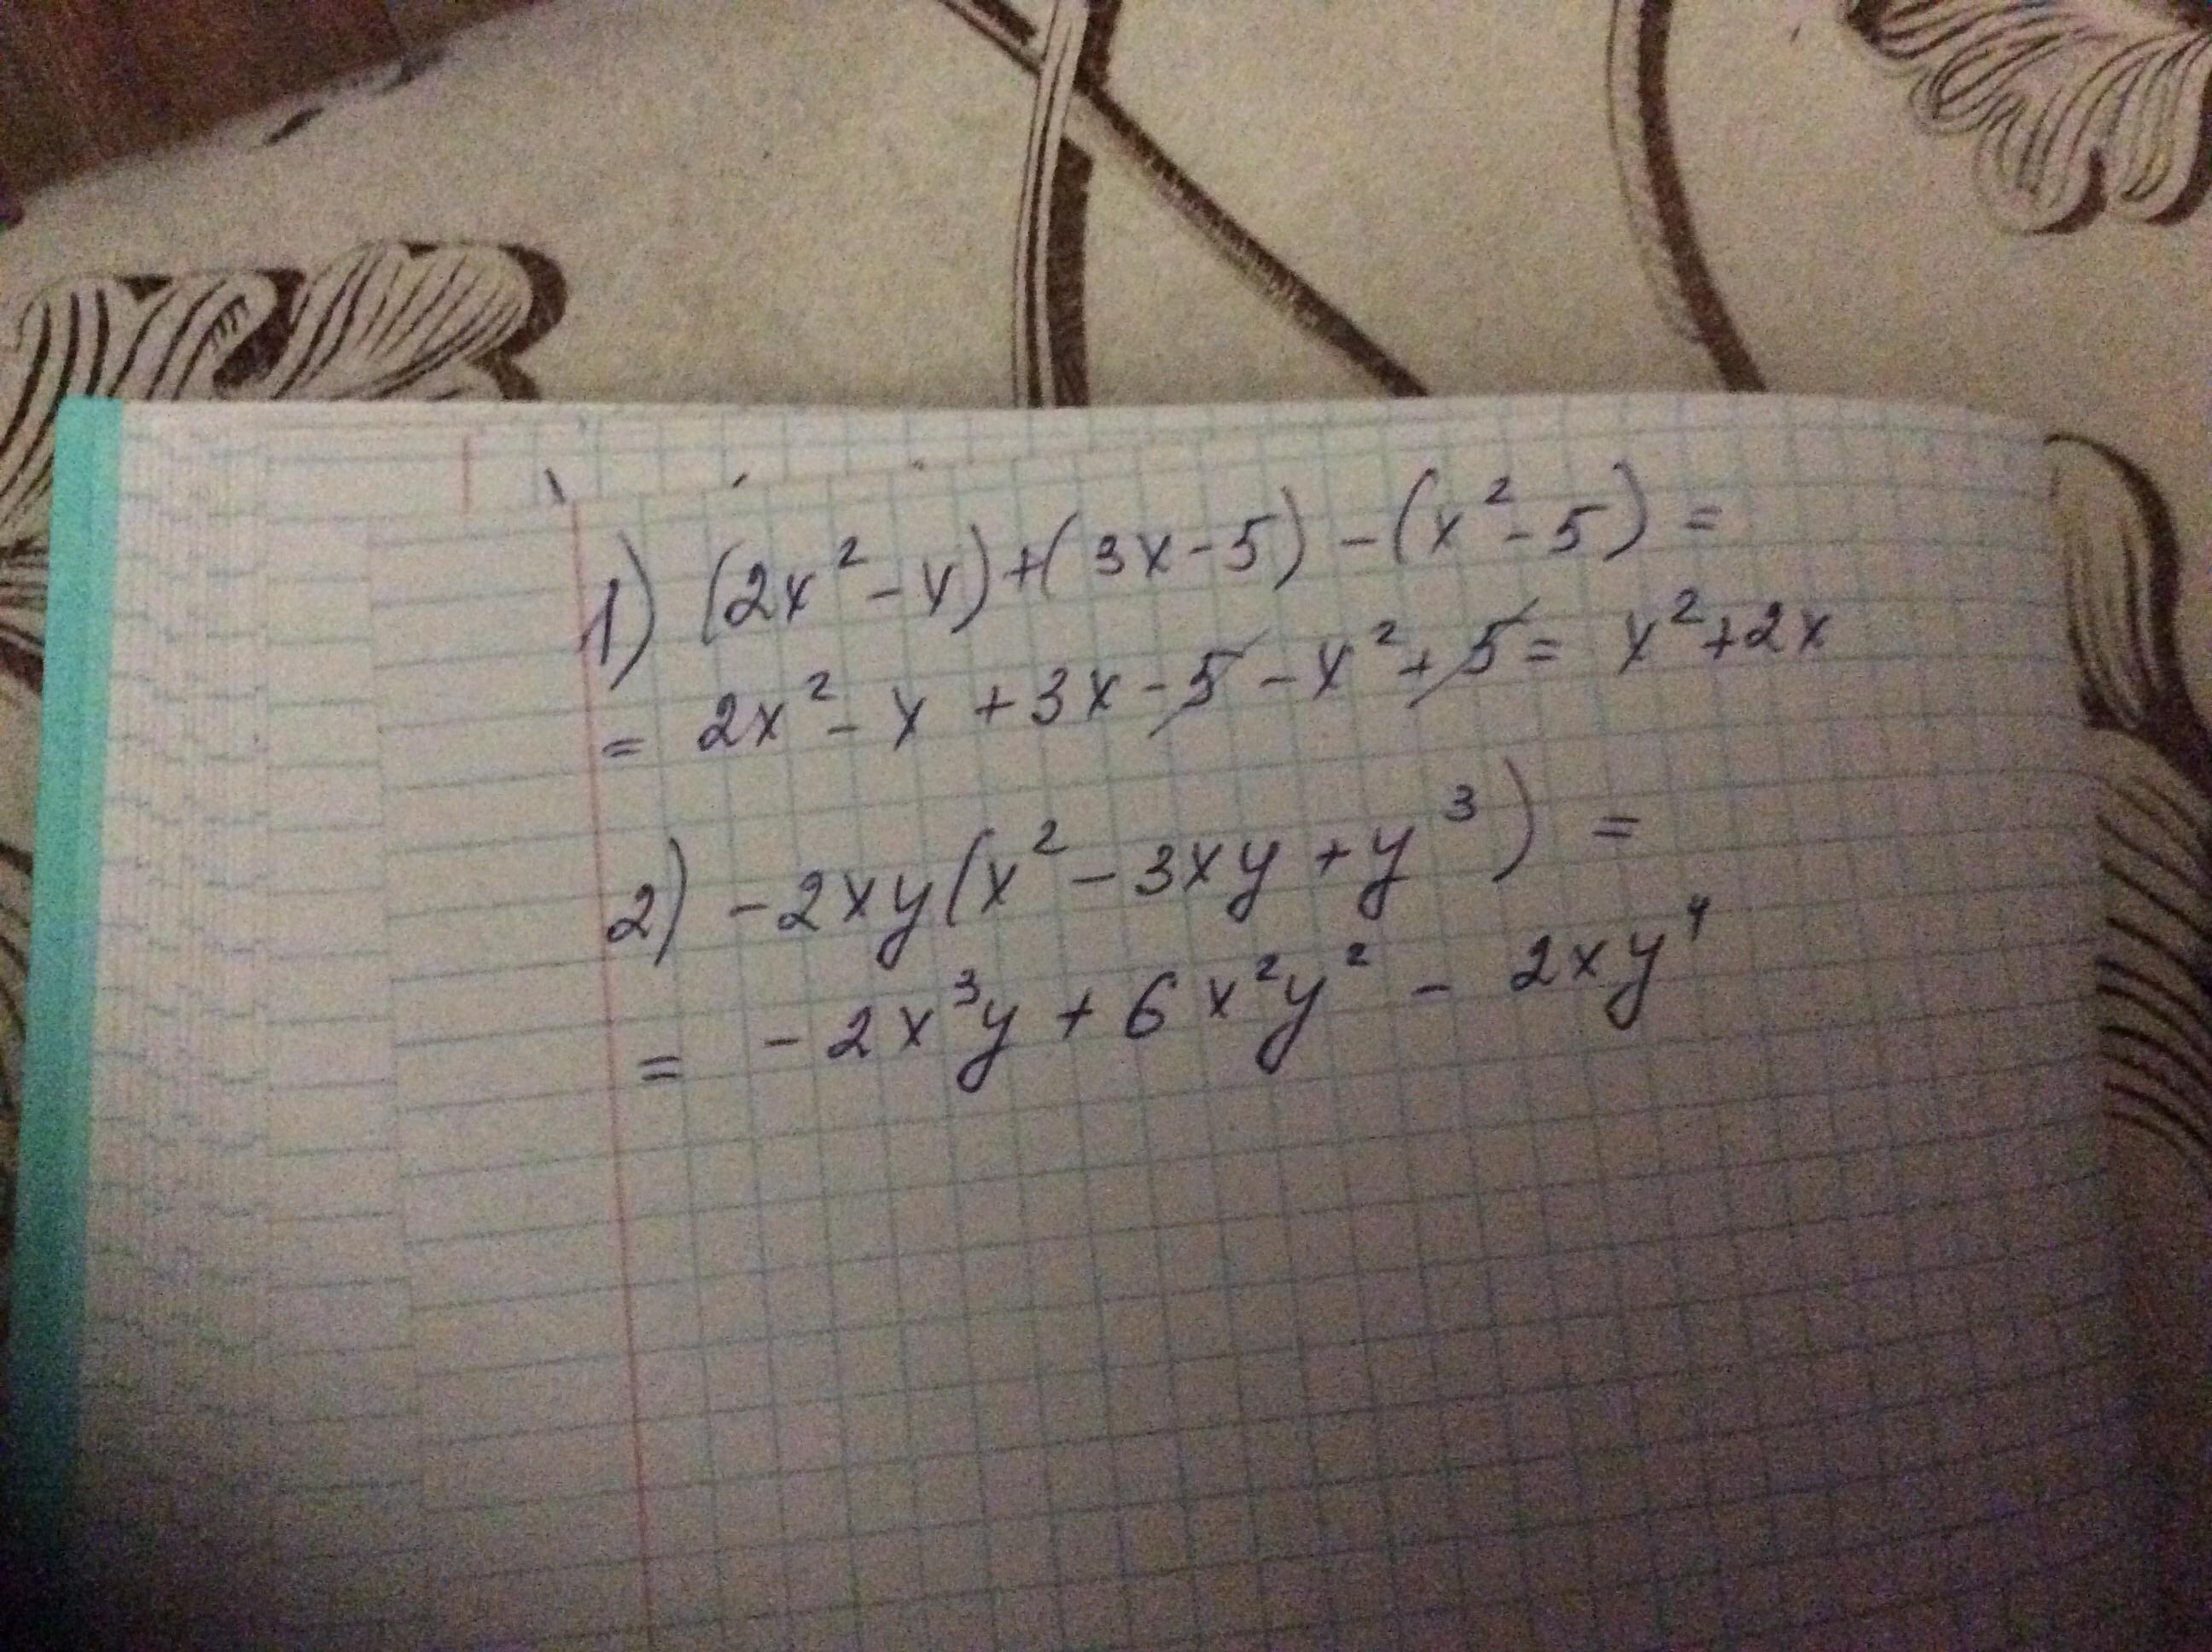 1) (2x² - x) + (3x - 5) - (x² - 5) =
= 2x² - x + 3x - 5 - x² + 5 = x² + 2x
2) - 2xy(x² - 3xy + y³) =
= - 2x³y + 6x²y² - 2xy⁴